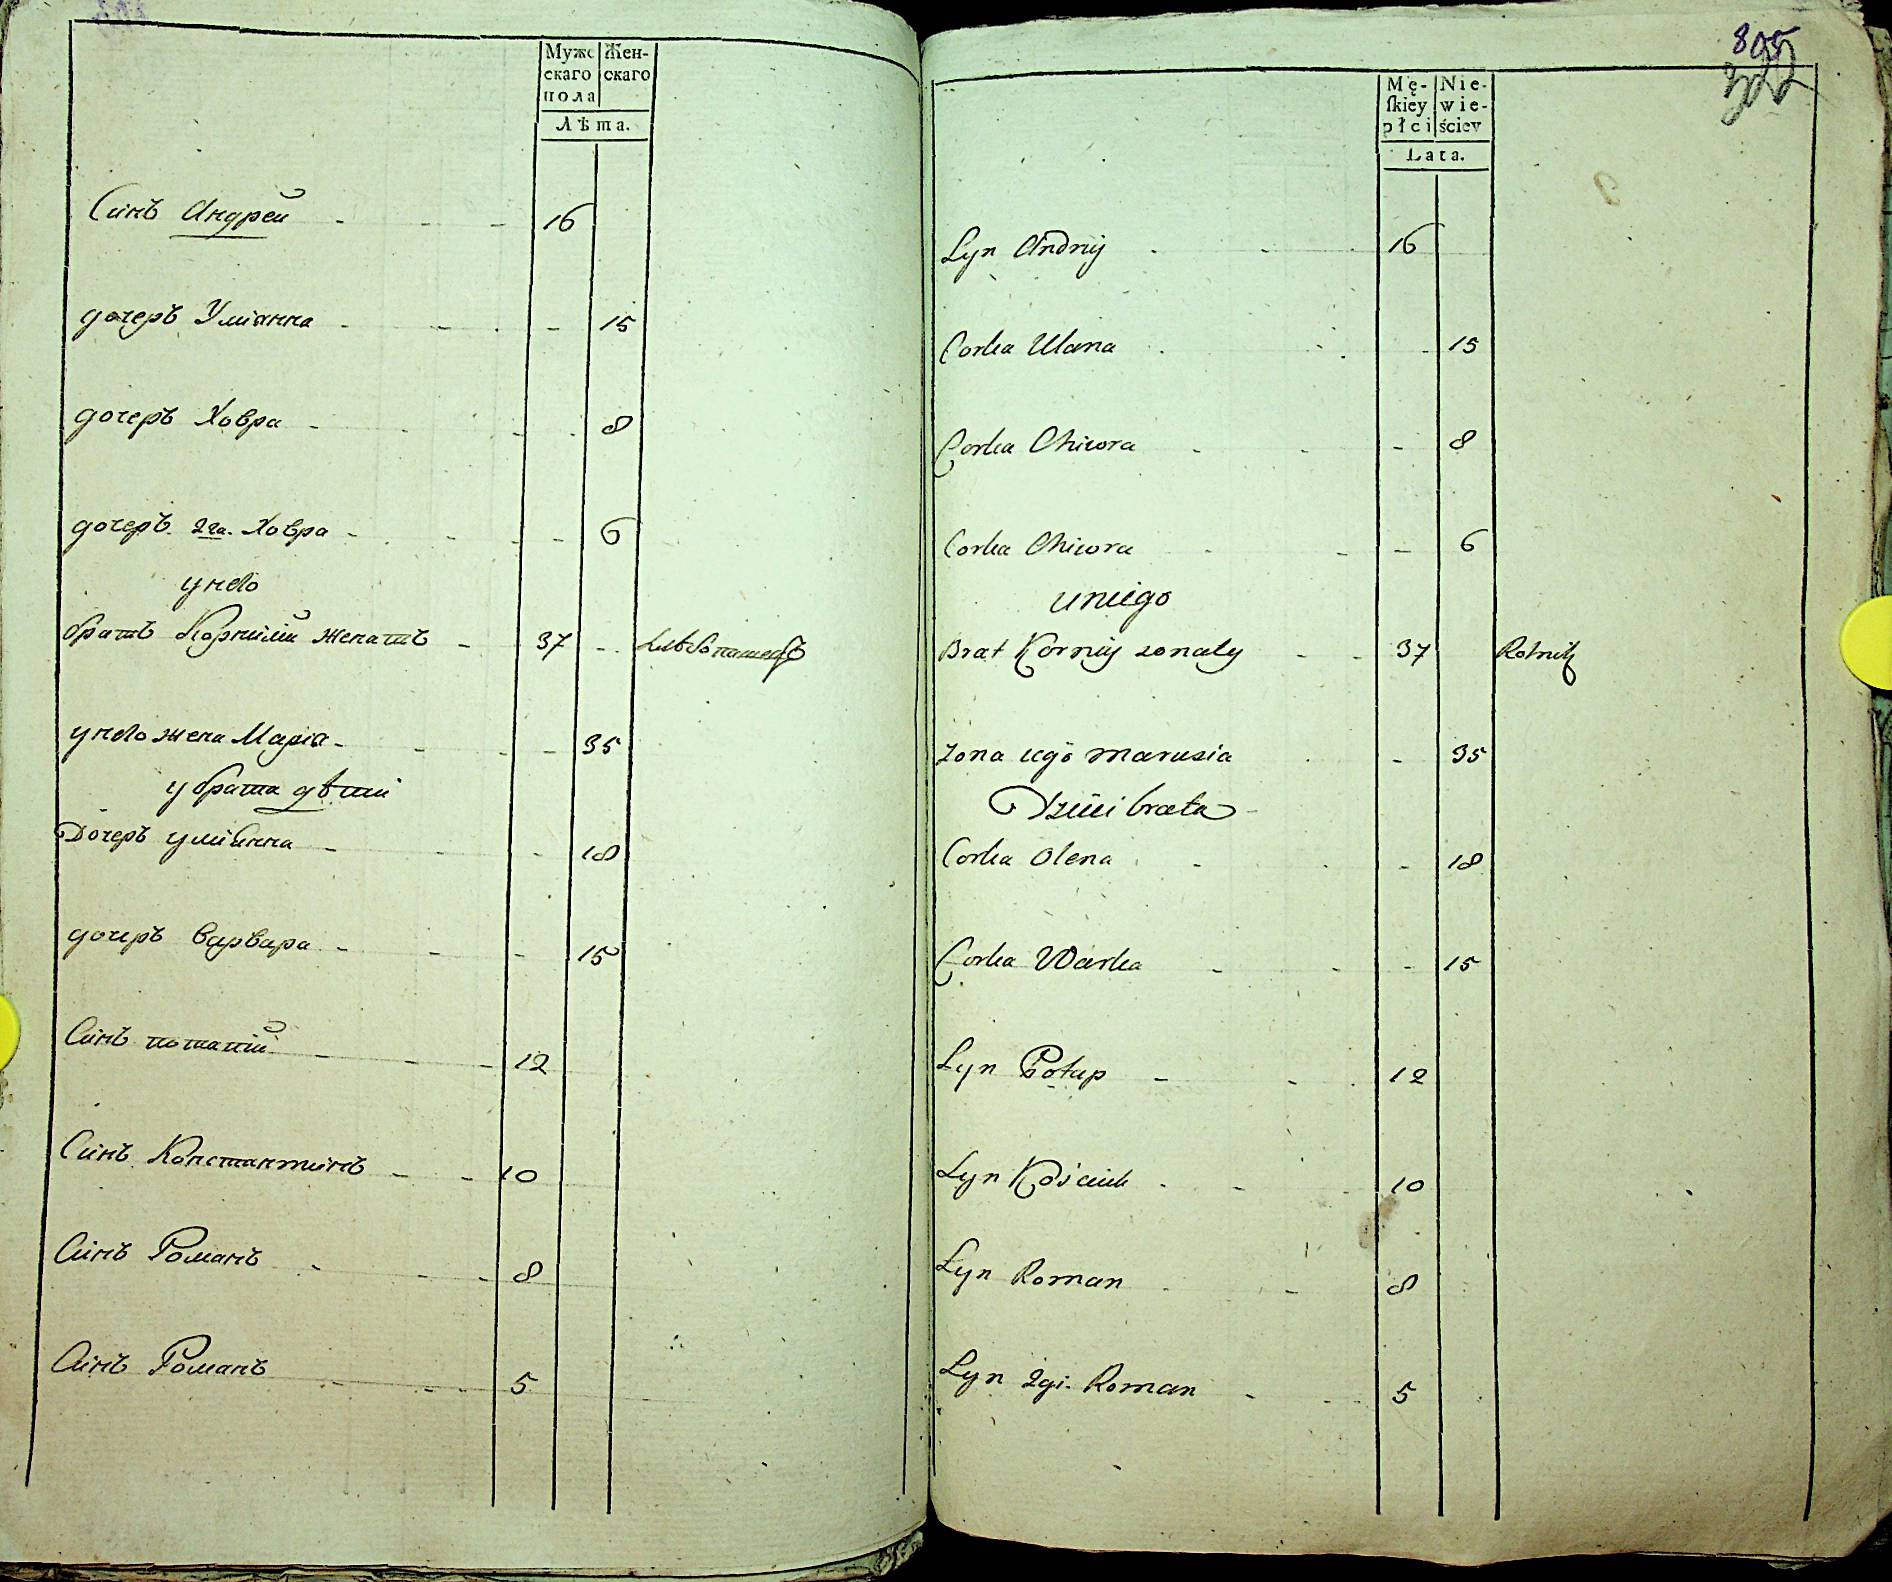 Мужс Жен-
скаго скаго
пола
Лѣта.
Синъ Андрей 16
дочеръ Улiанна 15
дочеръ Ховра 8
дочеръ 2га. Ховра 6
унего
братъ Корнилiй женатъ 37 хлѣбопашецъ
унего жена Марiа 35
у брата дѣти
Дочеръ улiанна 18
дочеръ варвара 15
Синъ потапiй 12
Синъ Константинъ 10
Синъ Романъ 8
Синъ Романъ 5
805
322
Mę- Nie-
ſkiey wie-
płci ściey
Lata.
Syn Andriy 16
Corka Ulana 15
Corka Chiwra 8
Corka Chiwra 6
uniego
Brat Korniy zonaty 37 Rolnik
zona iego marusia 35
Dzieci brata
Corka Olena 18
Corka Warka 15
Syn Potap 12
Syn Kościuk 10
Syn Roman 8
Syn 2gi. Roman 5